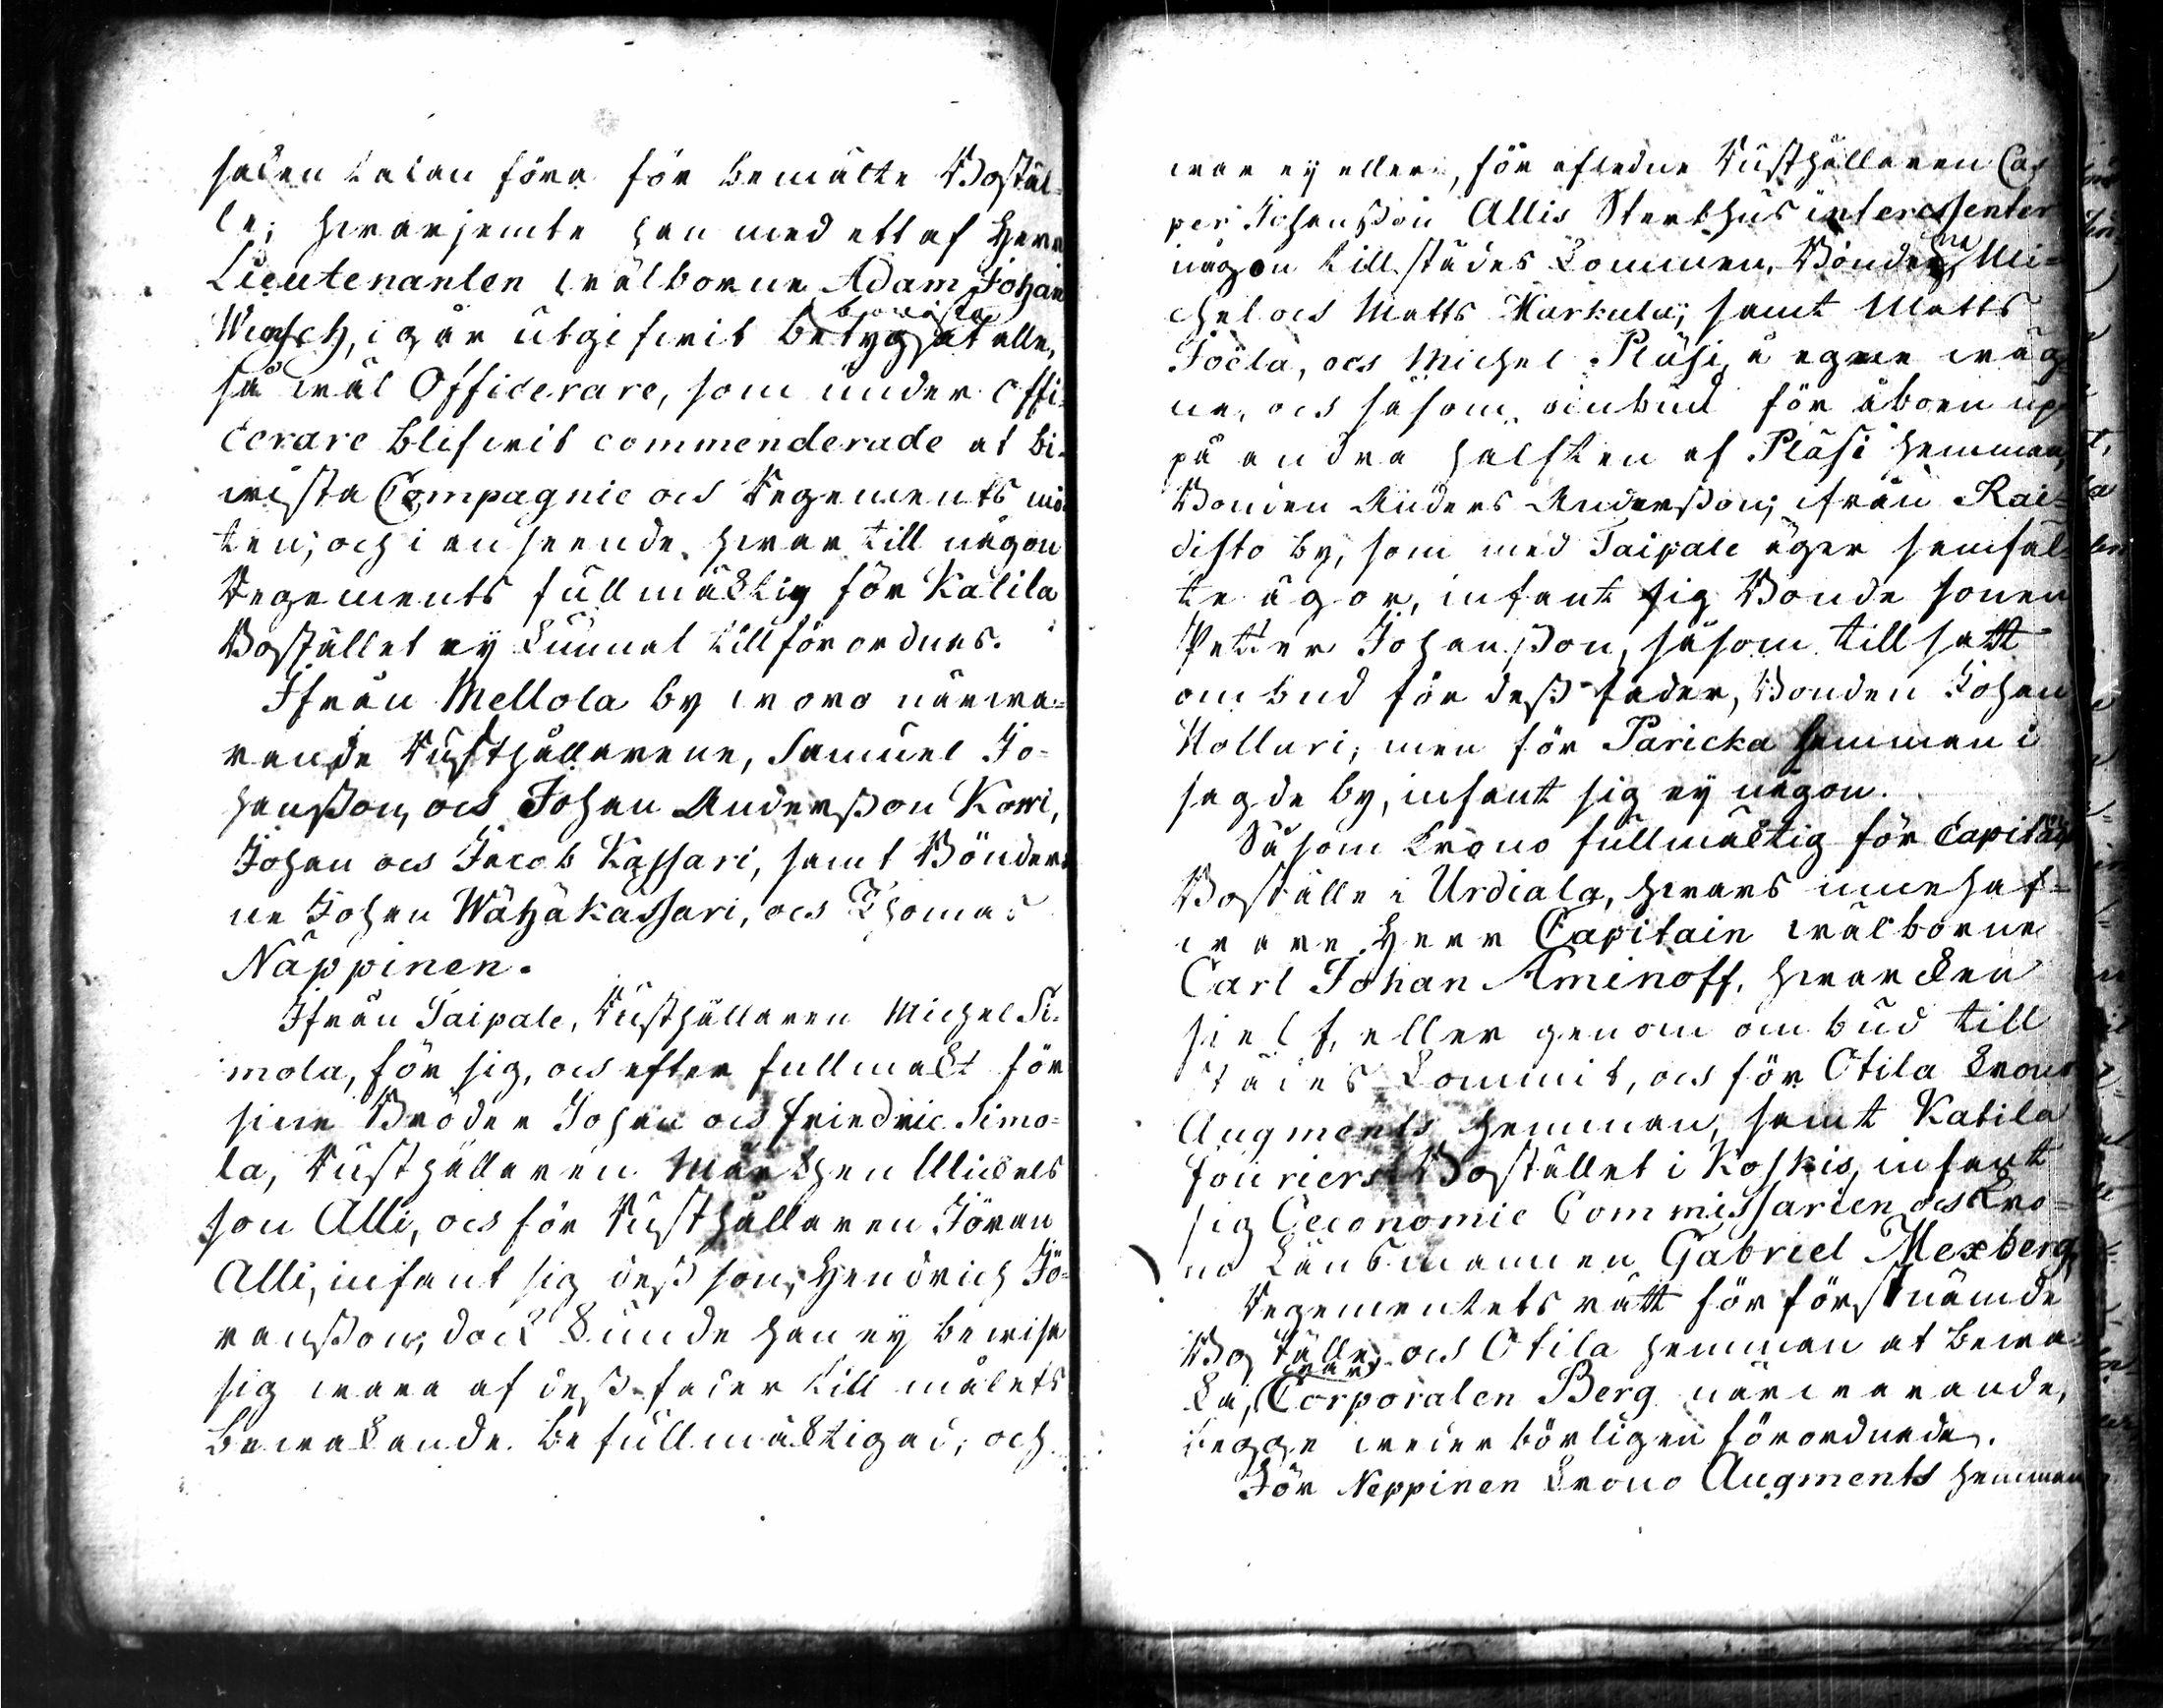 saken talan föra för bemälte Bostäl-
le; hwarjemte han med ett af Herr
Lieutenanten wälborne Adam Johan
Wunsch, i går utgifwit betyg bewiste at alle,
så wäl Officerare, som under offi-
cerare blifwit commenderade at bi-
wista Compagnie och Regements mö-
ten; och i anseende hwartill någon
Regements fullmäktig för Katila
Bostället ey kunnat tillförordnas.
Ifrån Mellola by woro närwa-
rande Rusthållarene, Samuel Jo-
hansson, och Johan Andersson Kowi,
Johan och Jacob Kassari, samt Bönder-
ne Johan Wähäkassari, och Thomas
Näppinen.
Ifrån Taipale, Rusthållaren Michel Si-
mola, för sig, och efter fullmakt för
sine Bröder Johan och Friedric Simo-
la, Rusthållaren Mårthen Michels
son Alli, och för Rusthållaren Jöran
Alli, infant sig dess son, Hendrich Jö-
ransson, dock kunde han ey bewisa
sig wara af dess fader till målets
bewakande befullmäktigad; och
war ey eller, för afledne Rusthållaren Cas
per Johansson Allis Sterbhus interessenter
någon tillstädes kommen. Bönderne Mi-
chel och Matts Markula, samt Matts
Joëla, och Michel Pläsi, å egne wäg
ne, och såsom ombud för åboen up
på andra hälften af Pläsi hemman,
Bonden Anders Andersson; ifrån Rai-
disto by, som med Taipale äger samfäl-
te ägor, infant sig Bonde sonen
Petter Johansson, såsom tillsatt
ombud för dess fader, Bonden Johan
Nollari; men för Paricka hemman i
sagde by, infant sig ey någon.
Såsom Krono fullmäktig för Capitäns
Boställe i Urdiala, hwars innehaf-
ware Herr Capitain wälborne
Carl Johan Aminoff, hwarken
sielf, eller genom ombud till
städes kommit, och för Otila Krono
Augments hemman, samt Katila
fouriers Bostället i Koskis, infant
sig Oeconomie Commissarien och Kro-
no Länsmannen Gabriel Mexberg,
Regementets rätt för förstnämde
Boställe och Otila hemman at bewa-
ka, war Corporalen Berg närwarande,
begge wederbörligen förordnade.
För Neppinen Krono Augments hemman